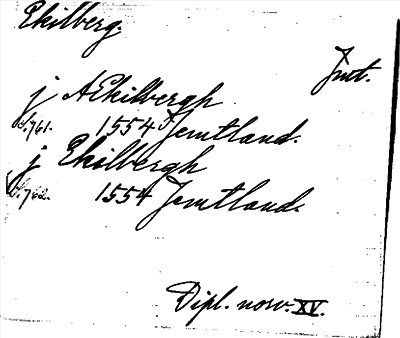 Ekilberg.
Jmt.
j AEkilbergh
S. 761. 1554 Jemtland.
j Ekilbergh
S. 762. 1554 Jemtland.
Dipl. norv. XV.